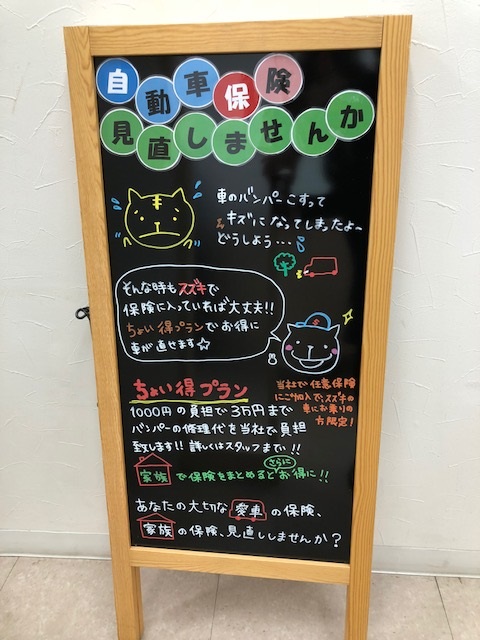 自動車保険
見直しませんか
車のバンパーこすって
キズになってしまったよ～
どうしよう･･･
そんな時もスズキで
保険に入っていれば大丈夫!!
ちょい得プランでお得に
車が直せます☆
S
ちょい得プラン
1000円の負担で3万円まで
バンパーの修理代を当社で負担
致します!! 詳しくはスタッフまで!!
当社で任意保険
にご加入で、スズキの
車にお乗りの
方限定!
さらに
家族で保険をまとめるとお得に!!
あなたの大切な愛車の保険、
家族の保険、見直ししませんか?